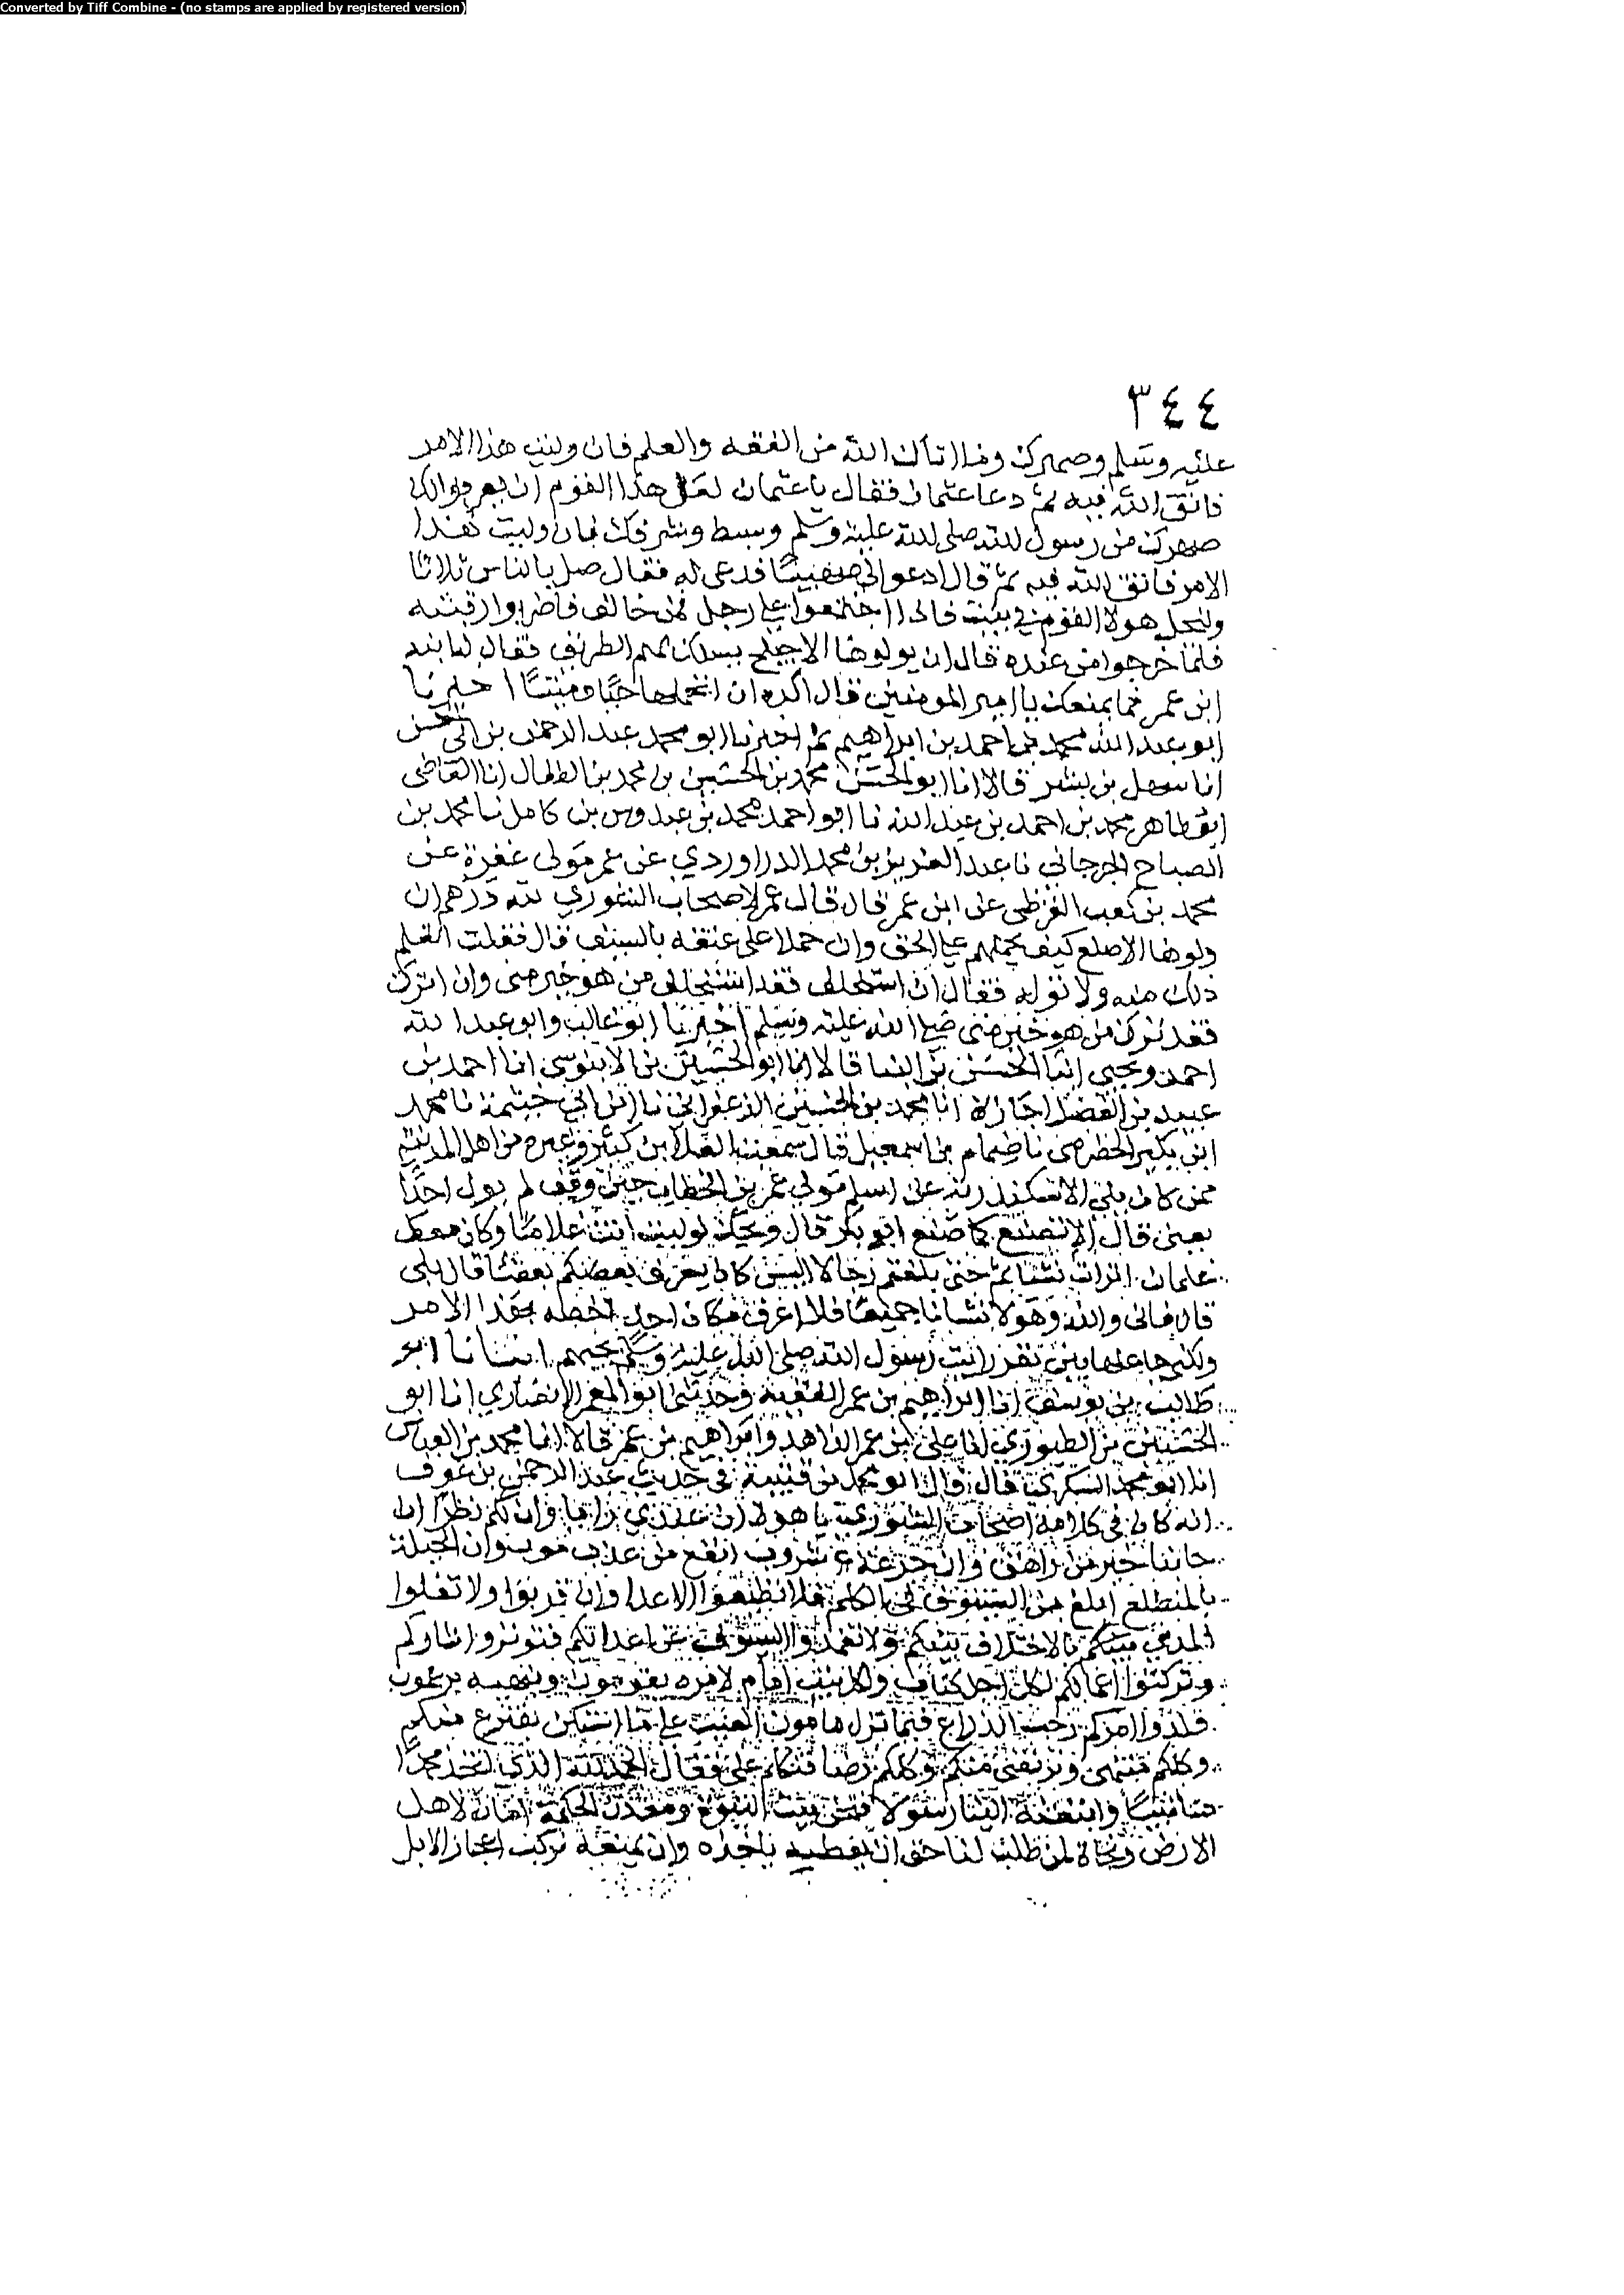 Converted by Tiff Combine - (no stamps are applied by registered version)
٣٤٤
عليه وسلم وصهرك وما اتاك الله من الفقه والعلم فان وليت هذا الامر
فاتق الله فيه ثم دعا عثمان فقال يا عثمان لعل هذا القوم ان يعرفوا لك
صهرك من رسول الله صلى الله عليه وسلم وسنك وشرفك فان وليت هذا
الامر فاتق الله فيه ثم قال ادعوا لي صهيبا فدعي له فقال صل بالناس ثلاثا
وليخل هولا القوم في بيت فاذا اجتمعوا على رجل فمن خالف فاضربوا رقبته
فلما خرجوا من عنده قال ان يولوها الاجيلح يسلك بهم الطريق فقال له ابنه
ابن عمر فما يمنعك يا امير المومنين قال اكره ان اتحملها حيا وميتا اخبرنا
ابو عبد الله محمد بن احمد بن ابراهيم ثم اخبرنا ابو محمد عبد الرحمن بن ابي الحسن
انا سهل بن بشر قالا انا ابو الحسن محمد بن الحسين بن محمد بن الطفال انا القاضي
ابو طاهر محمد بن احمد بن عبد الله نا ابو احمد محمد بن عبدوس بن كامل نا محمد بن
الصباح الجرجاني نا عبد العزيز بن محمد الدراوردي عن عمر مولى غفرة عن
محمد بن كعب القرظي عن ابن عمر قال قال عمر لاصحاب الشوري لله درهم ان
ولوها الاصلع كيف يحملهم على الحق وان حملا على عنقه بالسيف قال فقلت اتعلم
ذلك منه ولا توله فقال ان استخلف فقد استخلف من هو خير مني وان اترك
فقد ترك من هو خير مني صلى الله عليه وسلم اخبرنا ابو غالب وابو عبد الله
احمد ويحيى ابنا الحسن بن البنا قالا انا ابو الحسين بن الابنوسي انا احمد بن
عبيد بن الفضل اجازة انا محمد بن الحسين الزعفراني نا ابن ابي خيثمة نا محمد
ابن بكير الحضرمي نا ضمام بن اسمعيل قال سمعت العلا بن كثير وغيره من اهل المدينة
ممن كان يلي الاسكندرية عن اسلم مولي عمر بن الخطاب حين وقف لم يول احدا
يعني قال الا تصنع كما صنع ابو بكر قال ويحك لو ليت انت غلاما وكان معك
غلمان اتراب نشا ثم حتى بلغتم رجالا اليس كان يعرف بعضكم بعضا قال بلى
قال فاني والله وهولا نشانا جميعا فلا اعرف مكان احد تخطه بهذا الامر
ولكني جاعلها بين نفر رايت رسول الله صلى الله عليه وسلم يحبهم انبانا ابو
طالب بن يوسف انا ابراهيم بن عمر الفقيه وحدثنا ابو المعمر الانصاري انا ابو
الحسين بن الطيوري انا علي بن عمر الزاهد وابراهيم بن عمر قالا انا محمد بن العباس
انا ابو محمد السكري قال قال ابو محمد بن قتيبة في حديث عبد الرحمن بن عوف
انه كان في كلامه اصحاب الشوري يا هولا ان عندي رايا وان لكم نظرا ان
حابيا خير من زاهق وان جرعة شروب انفع من عذب موب وان الحيلة
بالمنطق ابلغ من السيوف في الكلم فلا تطيعوا الاعدا وان قربوا ولا تفلوا
المدي بينكم بالاختلاف بينكم ولا تغمدوا السيوف عن اعدائكم فتوتروا اثاركم
وتركتوا اعمالكم لكل اجل كتاب ولكل بيت امام لامره يقومون وبنهيه يرعون
قلدوا امركم رحب الذراع فيما نزل مامون الغيب على ما استكن يقترع منكم
وكلكم منتهى ويرتضى منكم وكلكم رضا فتكلم علي فقال الحمد لله الذي اتخذ محمدا
منا نبيا وابتعثه الينا رسولا فنحن بيت النبوة ومعدن الحكمة امان لاهل
الارض ونجاة لمن طلب لنا حق ان نعطه ناخذه وان نمنعه نركب اعجاز الابل